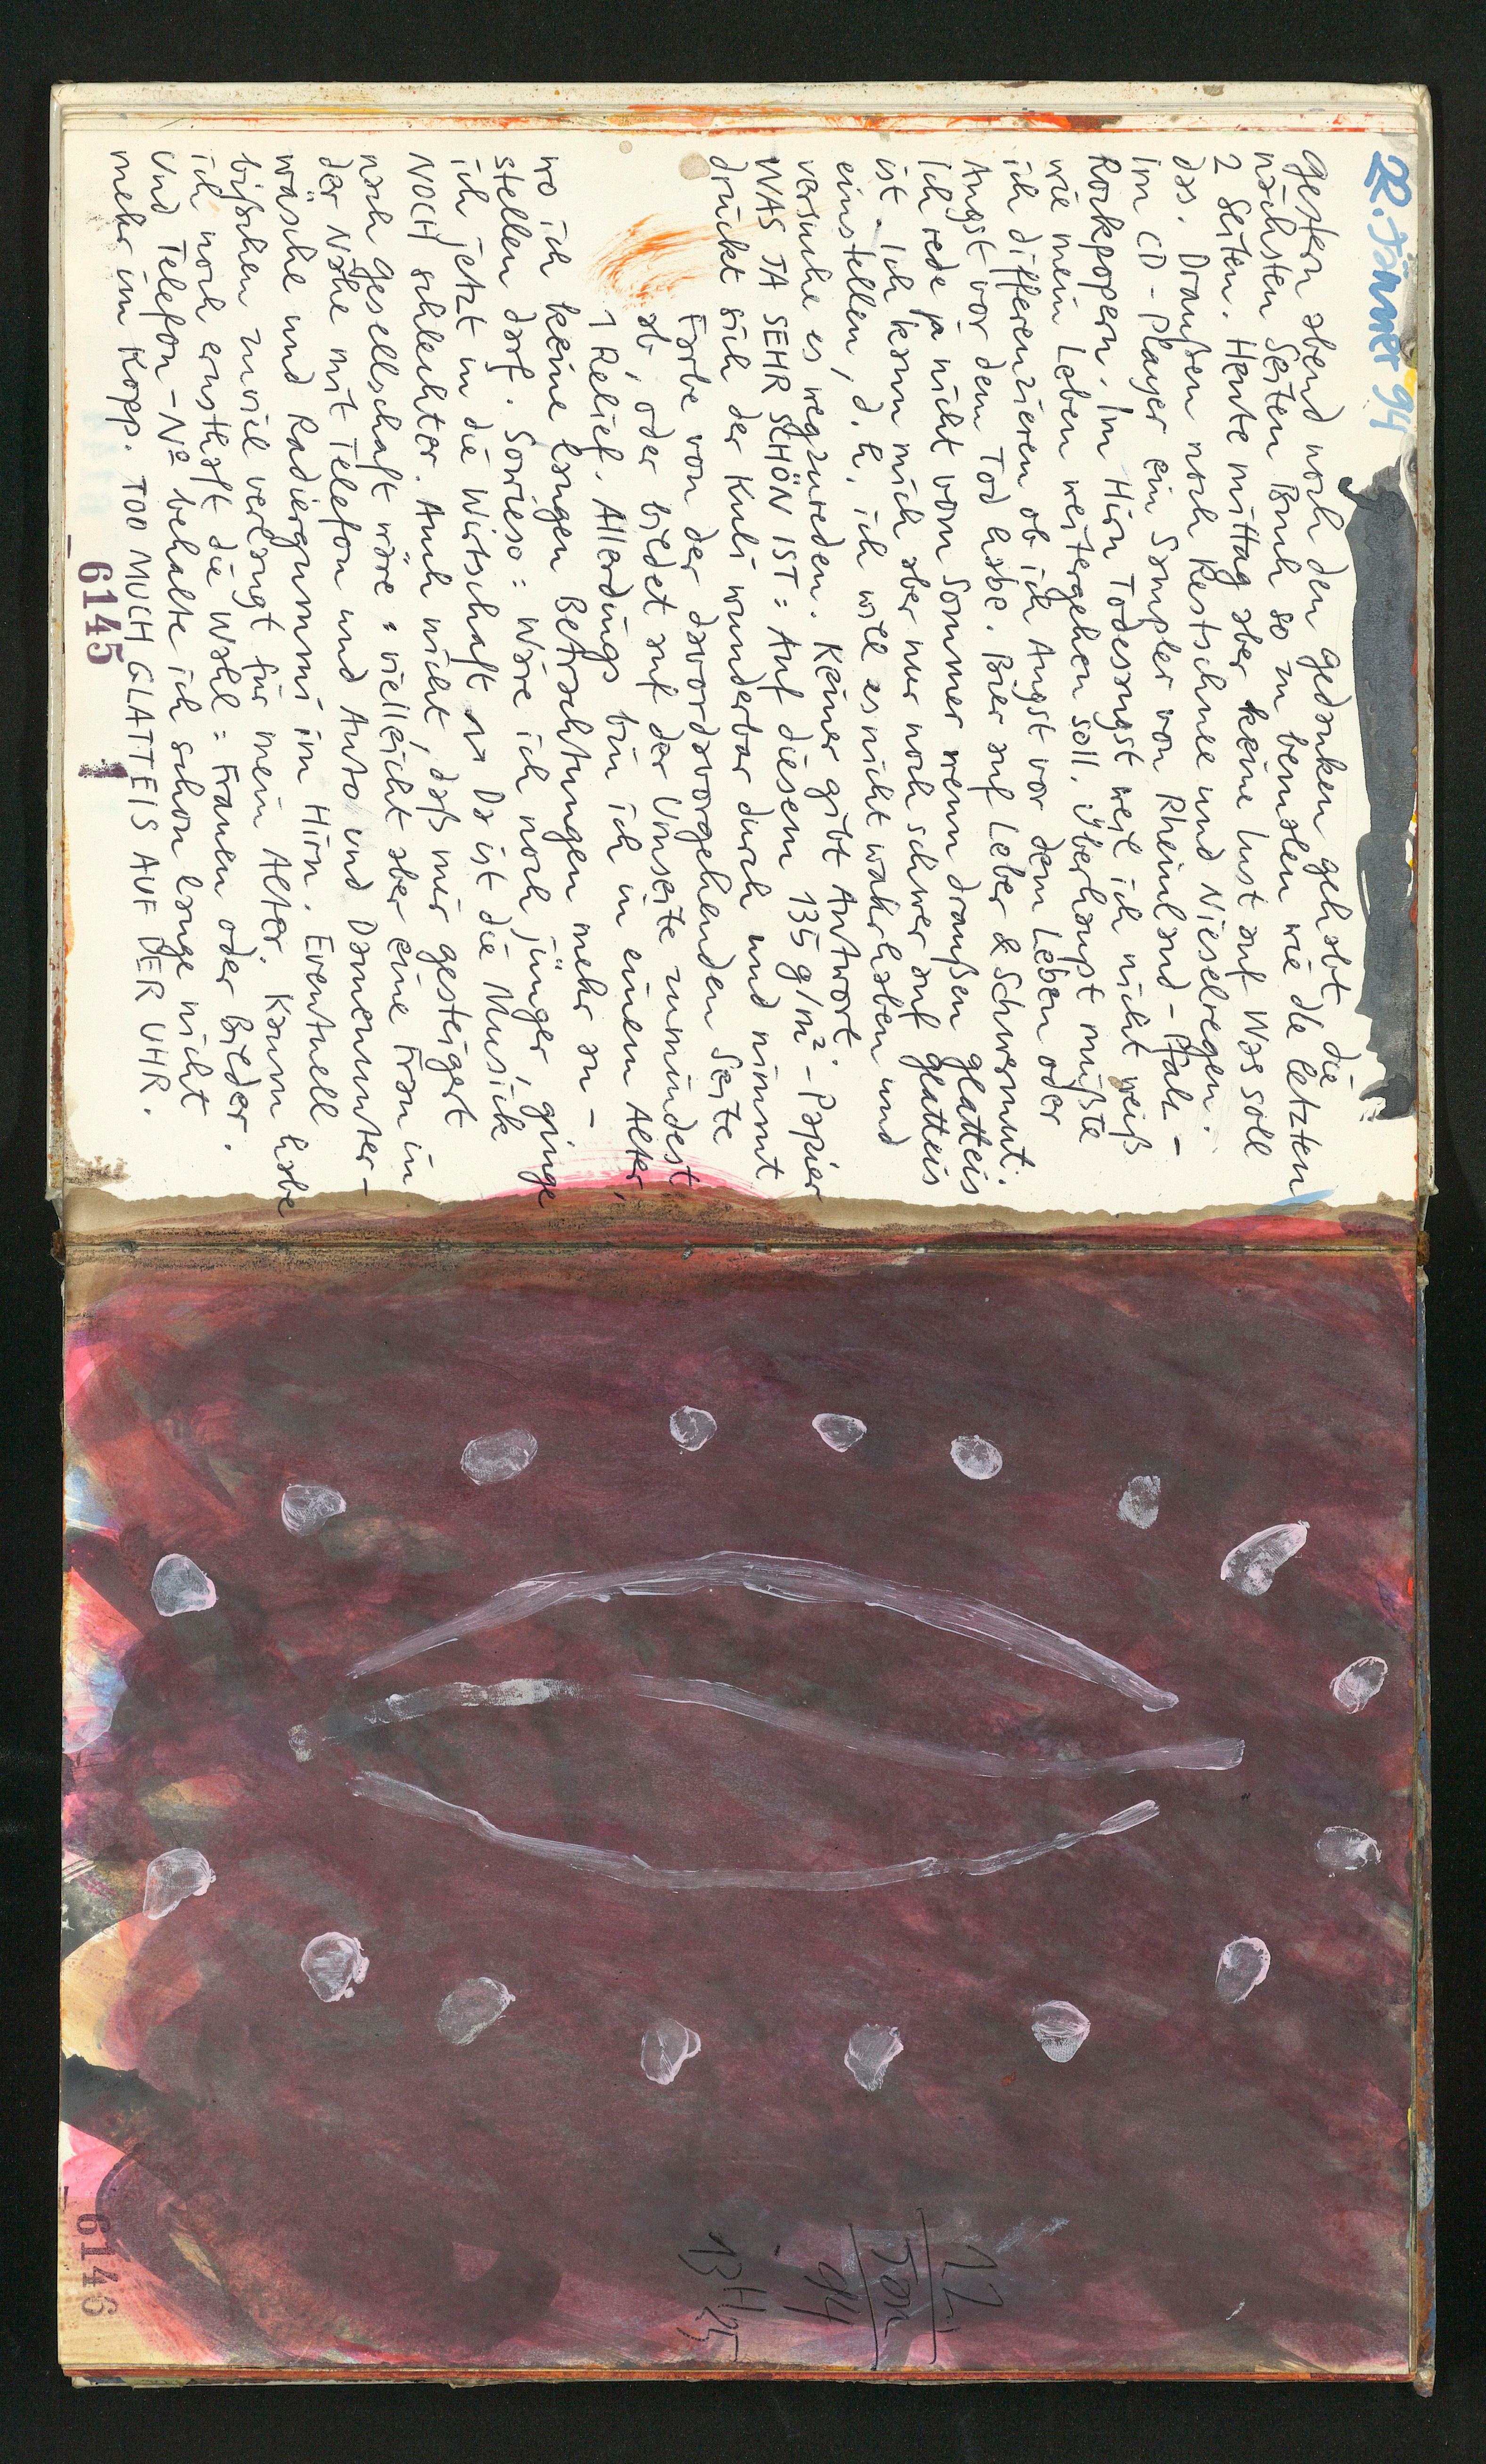 22. Jänner 94
gestern abend noch den gedanken gehabt, die
nächsten Seiten Bruch so zu bemalen wie die letzten
2 Seiten. Heute mittag aber keine Lust auf Was soll
das. Draußen noch Restschnee und Nieselregen.
Im CD-Player ein Sampler von Rheinland-Pfalz-
Rockpopern. Im Hirn Todesangst weil ich nicht weiß
wie mein Leben weitergehen soll. Überhaupt müßte
ich differenzieren ob ich Angst vor dem Leben oder
Angst vor dem Tod habe. Bier auf Leber & Schwermut:
Ich rede ja nicht vom Sommer wenn draußen glatteis
ist. Ich kann mich aber nur noch schwer auf glatteis
einstellen, d.h. ich will es nicht wahrhaben und
versuche es wegzureden. Keiner gibt Antwort.
WAS JA SEHR SCHÖN IST: Auf diesem 135 g/m²-Papier
drückt sich der Kuli wunderbar durch und nimmt
Farbe von der davordavorgehenden Seite
ab, oder bildet auf der Umseite zumindest
1 Relief. Allerdings bin ich in einem Alter,
wo ich keine langen Betrachtungen mehr an-
stellen darf. Sowieso: Wäre ich noch jünger, ginge
ich jetzt in die Wirtschaft Da ist die Musik
NOCH schlechter. Auch nicht, daß mir gesteigert
nach gesellschaft wäre: vielleicht aber eine Frau in
der Nähe mit Telefon und Auto und Damenunter-
wäsche und Radiergummi im Hirn. Eventuell
bißchen zuviel verlangt für mein Alter. Kaum habe
ich noch ernsthaft die Wahl: Frauen oder Bilder.
Und Telefon-Nº behalte ich schon lange nicht
mehr im Kopp. TOO MUCH GLATTEIS AUF DER UHR.
6145
22
Jan
94
13H25
6146